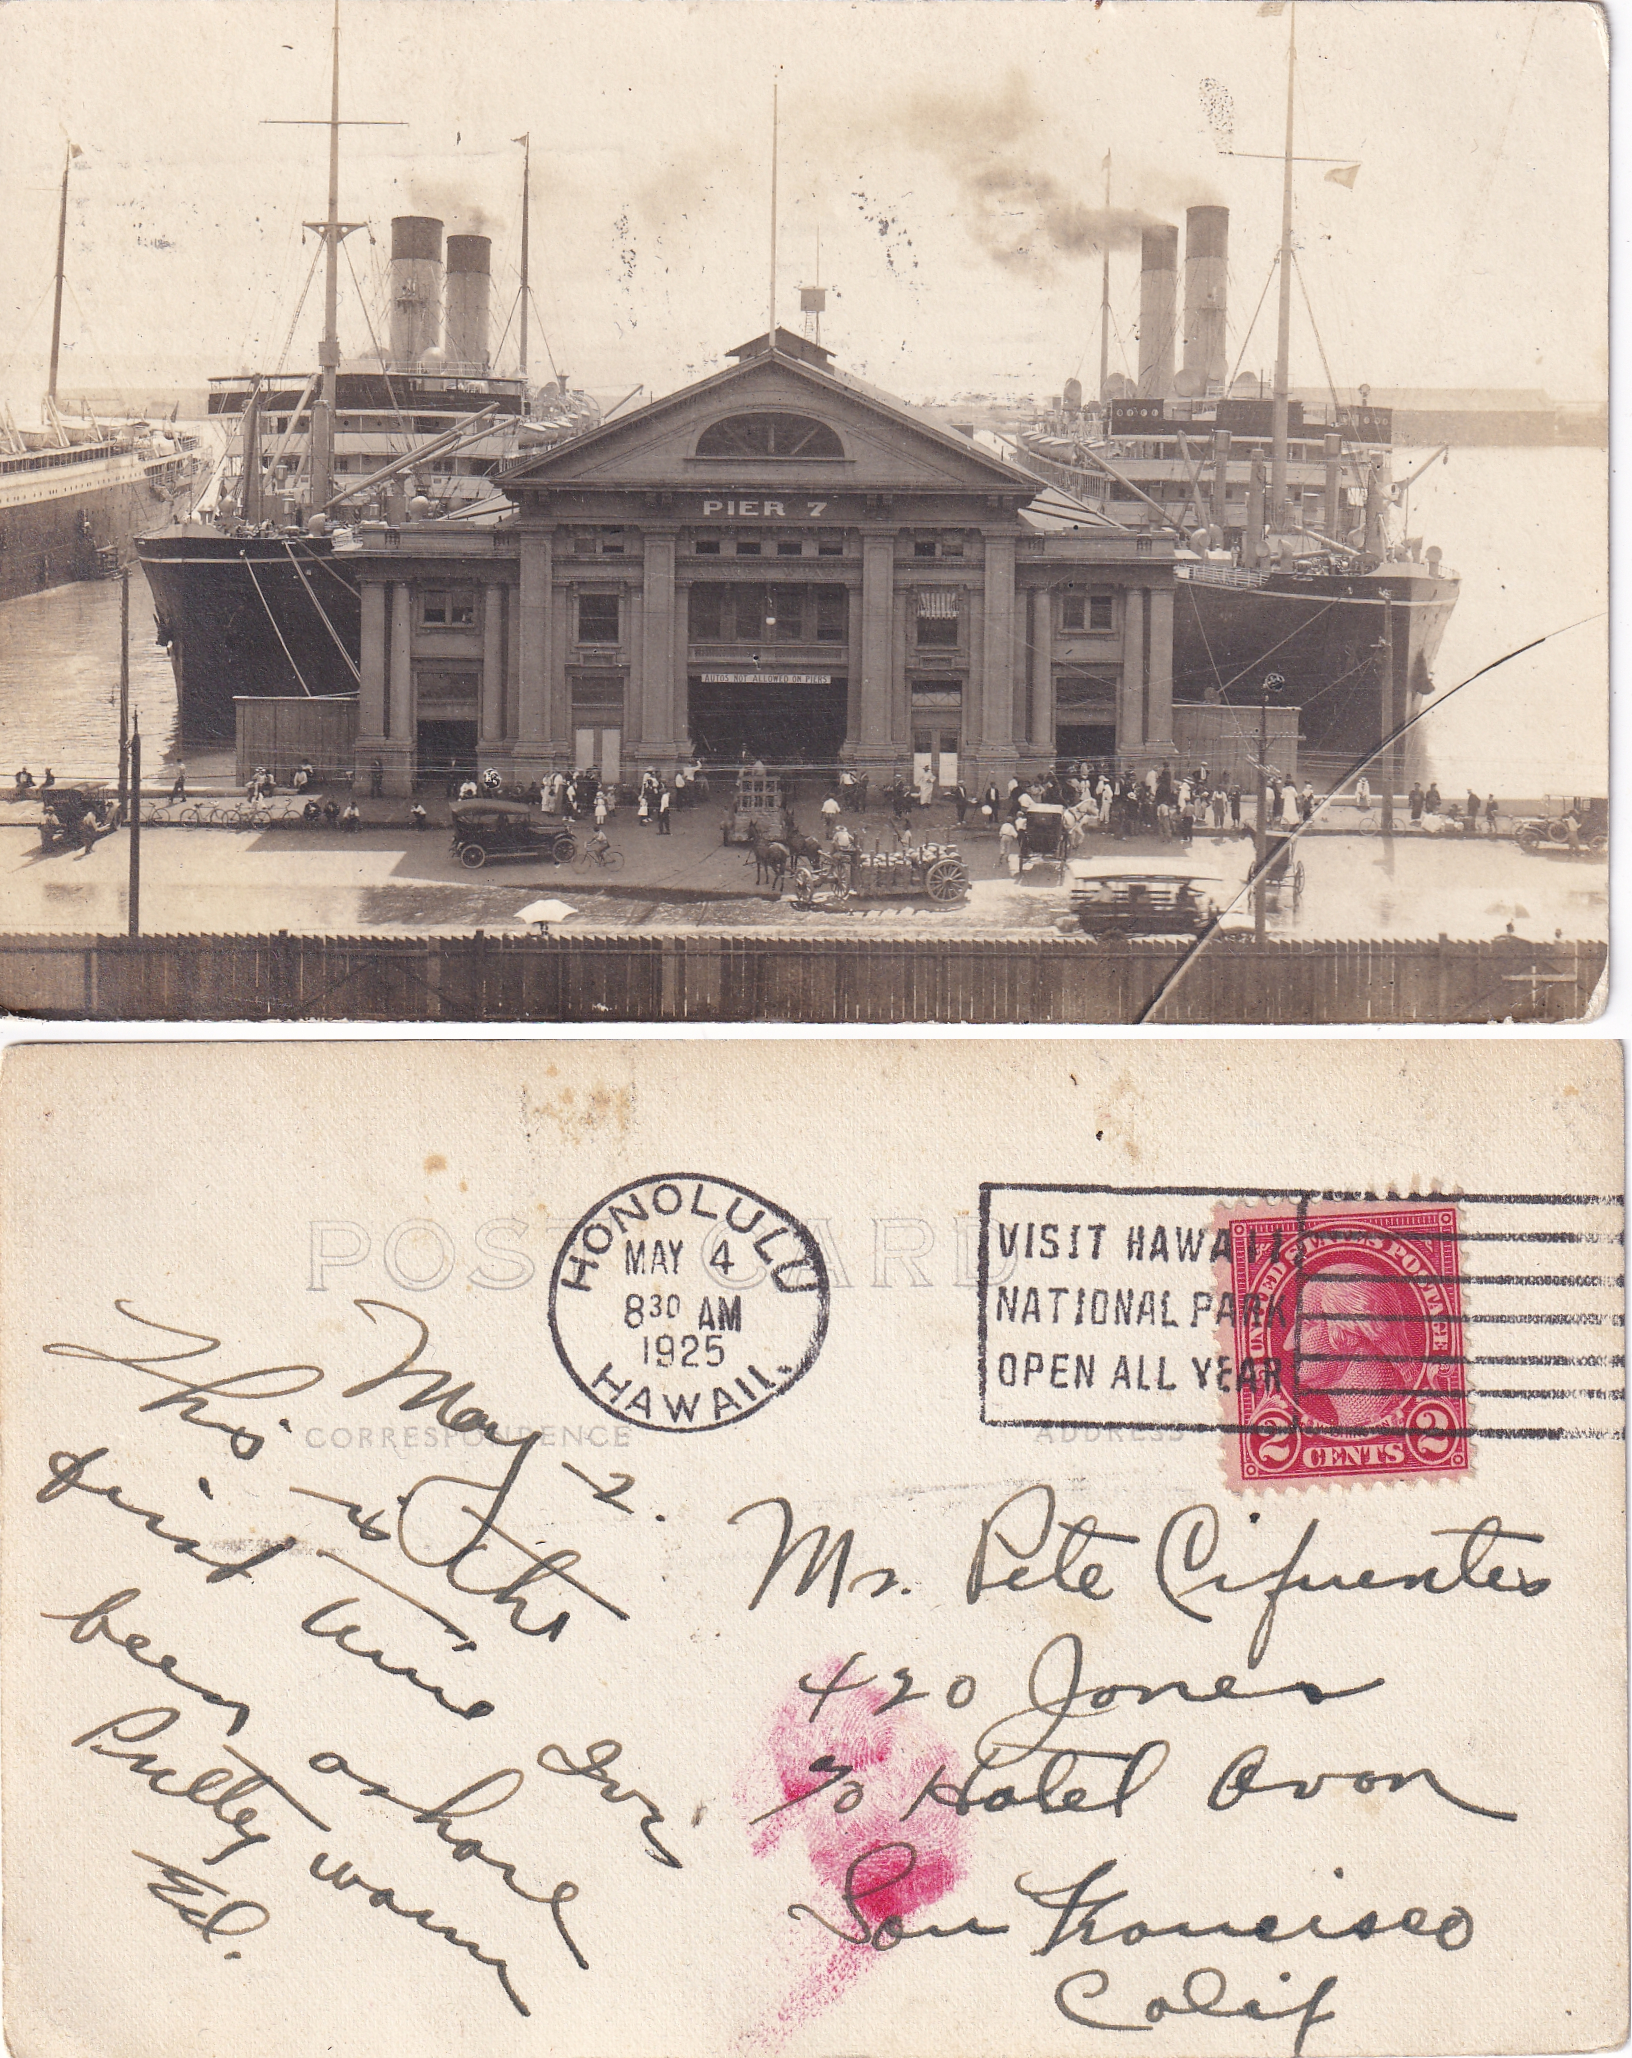 PIER 7
AUTOS NOT ALLOWED ON PIERS
POST CARD
HONOLULU
MAY 4
8 30 AM
1925
HAWAII.
VISIT HAWAII
NATIONAL PARK
OPEN ALL YEAR
UNITED STATES POSTAGE
2 CENTS 2
CORRESPONDENCE
ADDRESS
May 2.
This is the
first time I've
been ashore
Pretty warm
Ed.
Mr. Pete Cifuentes
420 Jones
c/o Hotel Avon
San Francisco
Calif